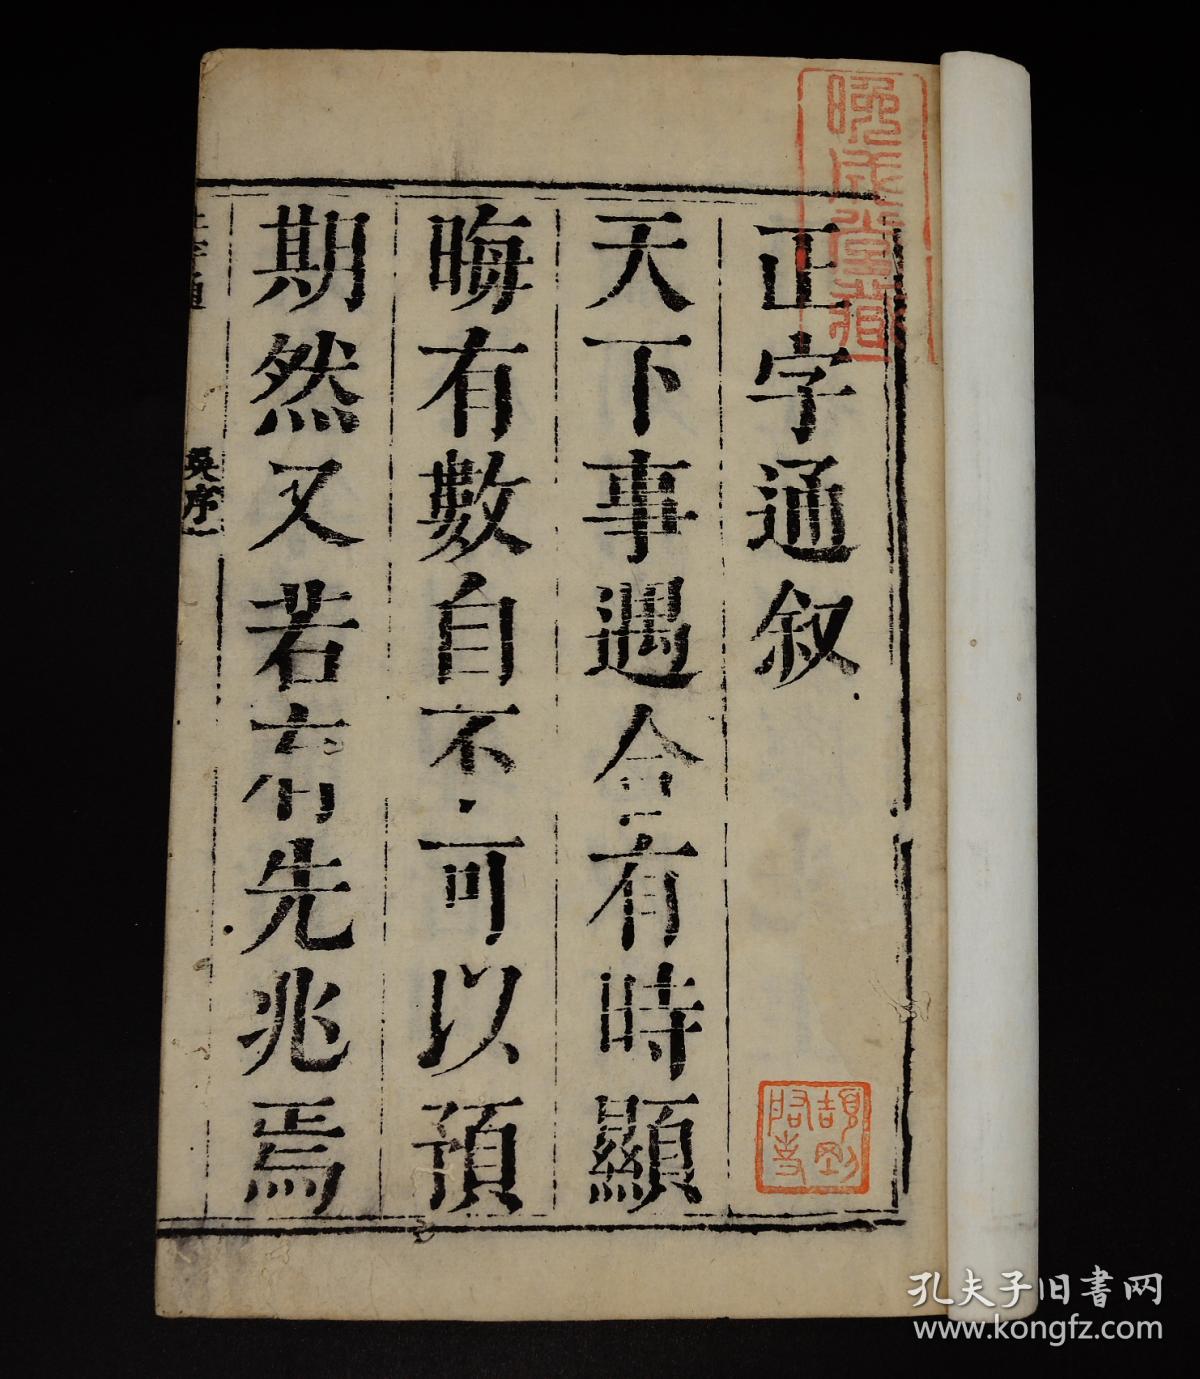 正字通叙
天下事遇合有時顯
晦有數自不可以預
期然又若有先兆焉
正字通
吳序
一
晚成堂藏
孔夫子旧书网
www.kongfz.com